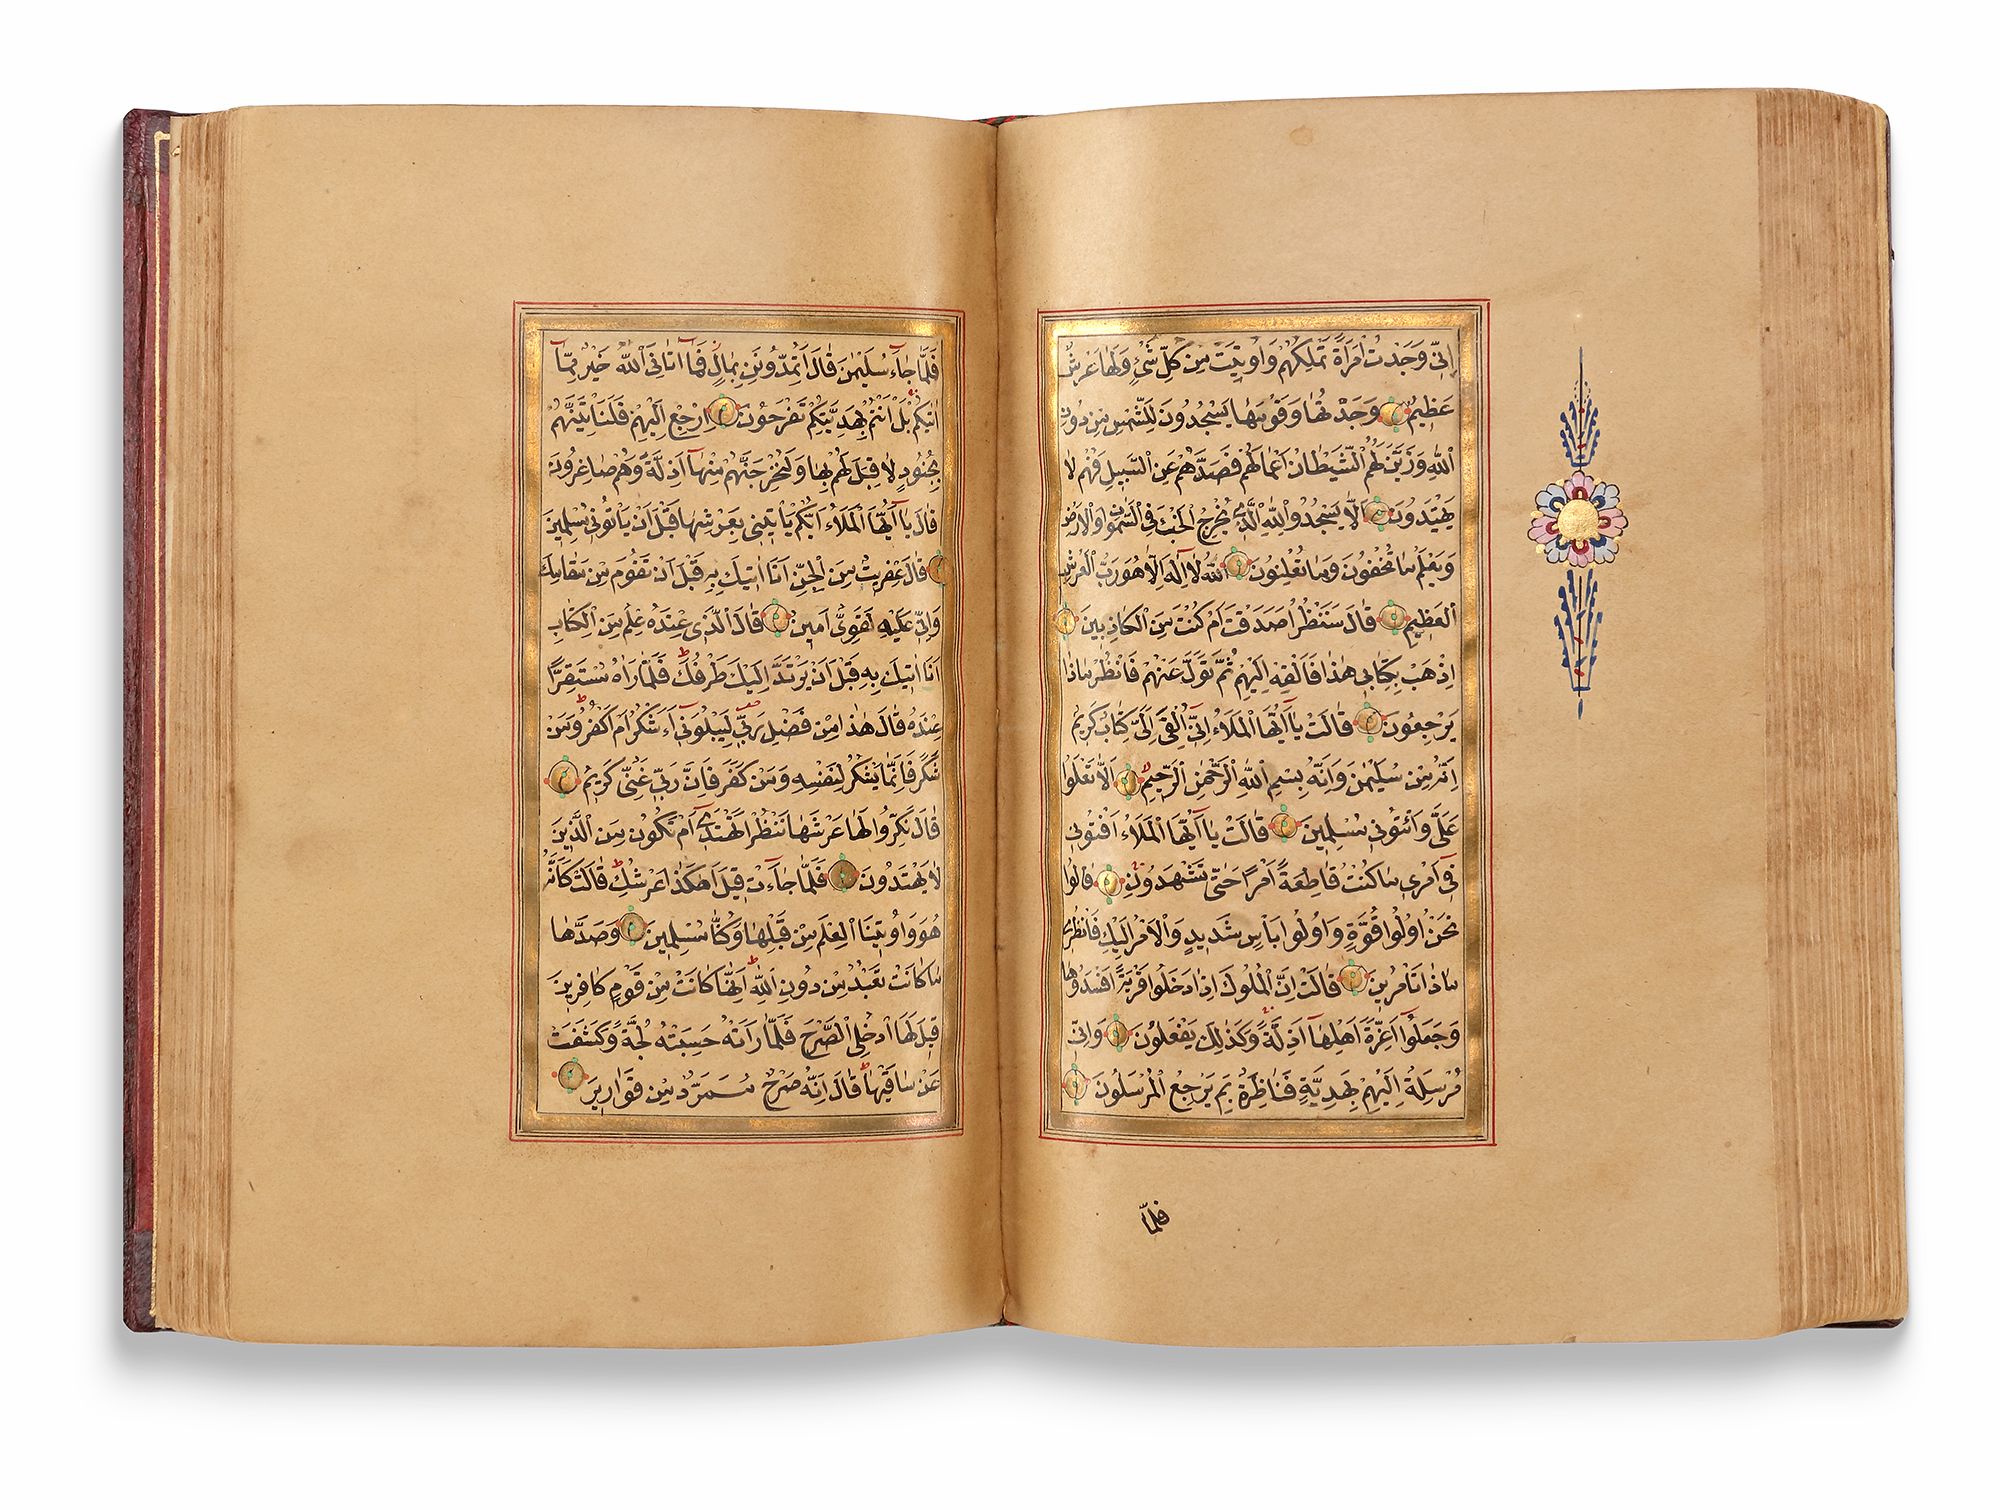 اِنّٖي وَجَدْتُ امْرَاَةً تَمْلِكُهُمْ وَاُوتِيَتْ مِنْ كُلِّ شَيْءٍ وَلَهَا عَرْشٌ
عَظِيمٌ وَجَدْتُهَا وَقَوْمَهَا يَسْجُدُونَ لِلشَّمْسِ مِنْ دُونِ
اللّٰهِ وَزَيَّنَ لَهُمُ الشَّيْطَانُ اَعْمَالَهُمْ فَصَدَّهُمْ عَنِ السَّبِيلِ فَهُمْ لَا
يَهْتَدُونَ اَلَّا يَسْجُدُوا لِلّٰهِ الَّذِي يُخْرِجُ الْخَبْءَ فِي السَّمٰوَاتِ وَالْاَرْضِ
وَيَعْلَمُ مَا تُخْفُونَ وَمَا تُعْلِنُونَ اَللّٰهُ لَا اِلٰهَ اِلَّا هُوَ رَبُّ الْعَرْشِ
الْعَظِيمِ قَالَ سَنَنْظُرُ اَصَدَقْتَ اَمْ كُنْتَ مِنَ الْكَاذِبِينَ
اِذْهَبْ بِكِتَابِي هٰذَا فَاَلْقِهْ اِلَيْهِمْ ثُمَّ تَوَلَّ عَنْهُمْ فَانْظُرْ مَاذَا
يَرْجِعُونَ قَالَتْ يَا اَيُّهَا الْمَلَاءُ اِنِّي اُلْقِيَ اِلَيَّ كِتَابٌ كَرِيمٌ
اِنَّهُ مِنْ سُلَيْمٰنَ وَاِنَّهُ بِسْمِ اللّٰهِ الرَّحْمٰنِ الرَّحِيمِ اَلَّا تَعْلُوا
عَلَيَّ وَاْتُونِي مُسْلِمِينَ قَالَتْ يَا اَيُّهَا الْمَلَاءُ اَفْتُونِي
فِي اَمْرِي مَا كُنْتُ قَاطِعَةً اَمْرًا حَتّٰى تَشْهَدُونِ قَالُوا
نَحْنُ اُولُوا قُوَّةٍ وَاُولُوا بَاْسٍ شَدِيدٍ وَالْاَمْرُ اِلَيْكِ فَانْظُرِي
مَاذَا تَاْمُرِينَ قَالَتْ اِنَّ الْمُلُوكَ اِذَا دَخَلُوا قَرْيَةً اَفْسَدُوهَا
وَجَعَلُوا اَعِزَّةَ اَهْلِهَا اَذِلَّةً وَكَذٰلِكَ يَفْعَلُونَ وَاِنِّي
مُرْسِلَةٌ اِلَيْهِمْ بِهَدِيَّةٍ فَنَاظِرَةٌ بِمَ يَرْجِعُ الْمُرْسَلُونَ
فلمّا
فَلَمَّا جَاءَ سُلَيْمٰنَ قَالَ اَتُمِدُّونَنِ بِمَالٍ فَمَا اٰتَانِيَ اللّٰهُ خَيْرٌ مِمَّا
اٰتٰيكُمْ بَلْ اَنْتُمْ بِهَدِيَّتِكُمْ تَفْرَحُونَ اِرْجِعْ اِلَيْهِمْ فَلَنَاْتِيَنَّهُمْ
بِجُنُودٍ لَا قِبَلَ لَهُمْ بِهَا وَلَنُخْرِجَنَّهُمْ مِنْهَا اَذِلَّةً وَهُمْ صَاغِرُونَ
قَالَ يَا اَيُّهَا الْمَلَاءُ اَيُّكُمْ يَاْتِينِي بِعَرْشِهَا قَبْلَ اَنْ يَاْتُونِي مُسْلِمِينَ
قَالَ عِفْرِيتٌ مِنَ الْجِنِّ اَنَا اٰتِيكَ بِهِ قَبْلَ اَنْ تَقُومَ مِنْ مَقَامِكَ
وَاِنِّي عَلَيْهِ لَقَوِيٌّ اَمِينٌ قَالَ الَّذِي عِنْدَهُ عِلْمٌ مِنَ الْكِتَابِ
اَنَا اٰتِيكَ بِهِ قَبْلَ اَنْ يَرْتَدَّ اِلَيْكَ طَرْفُكَ فَلَمَّا رَاٰهُ مُسْتَقِرًّا
عِنْدَهُ قَالَ هٰذَا مِنْ فَضْلِ رَبِّي لِيَبْلُوَنِي ءَاَشْكُرُ اَمْ اَكْفُرُ وَمَنْ
شَكَرَ فَاِنَّمَا يَشْكُرُ لِنَفْسِهِ وَمَنْ كَفَرَ فَاِنَّ رَبِّي غَنِيٌّ كَرِيمٌ
قَالَ نَكِّرُوا لَهَا عَرْشَهَا نَنْظُرْ اَتَهْتَدِي اَمْ تَكُونُ مِنَ الَّذِينَ
لَا يَهْتَدُونَ فَلَمَّا جَاءَتْ قِيلَ اَهٰكَذَا عَرْشُكِ قَالَتْ كَاَنَّهُ
هُوَ وَاُوتِينَا الْعِلْمَ مِنْ قَبْلِهَا وَكُنَّا مُسْلِمِينَ وَصَدَّهَا
مَا كَانَتْ تَعْبُدُ مِنْ دُونِ اللّٰهِ اِنَّهَا كَانَتْ مِنْ قَوْمٍ كَافِرِينَ
قِيلَ لَهَا ادْخُلِي الصَّرْحَ فَلَمَّا رَاَتْهُ حَسِبَتْهُ لُجَّةً وَكَشَفَتْ
عَنْ سَاقَيْهَا قَالَ اِنَّهُ صَرْحٌ مُمَرَّدٌ مِنْ قَوَارِيرَ